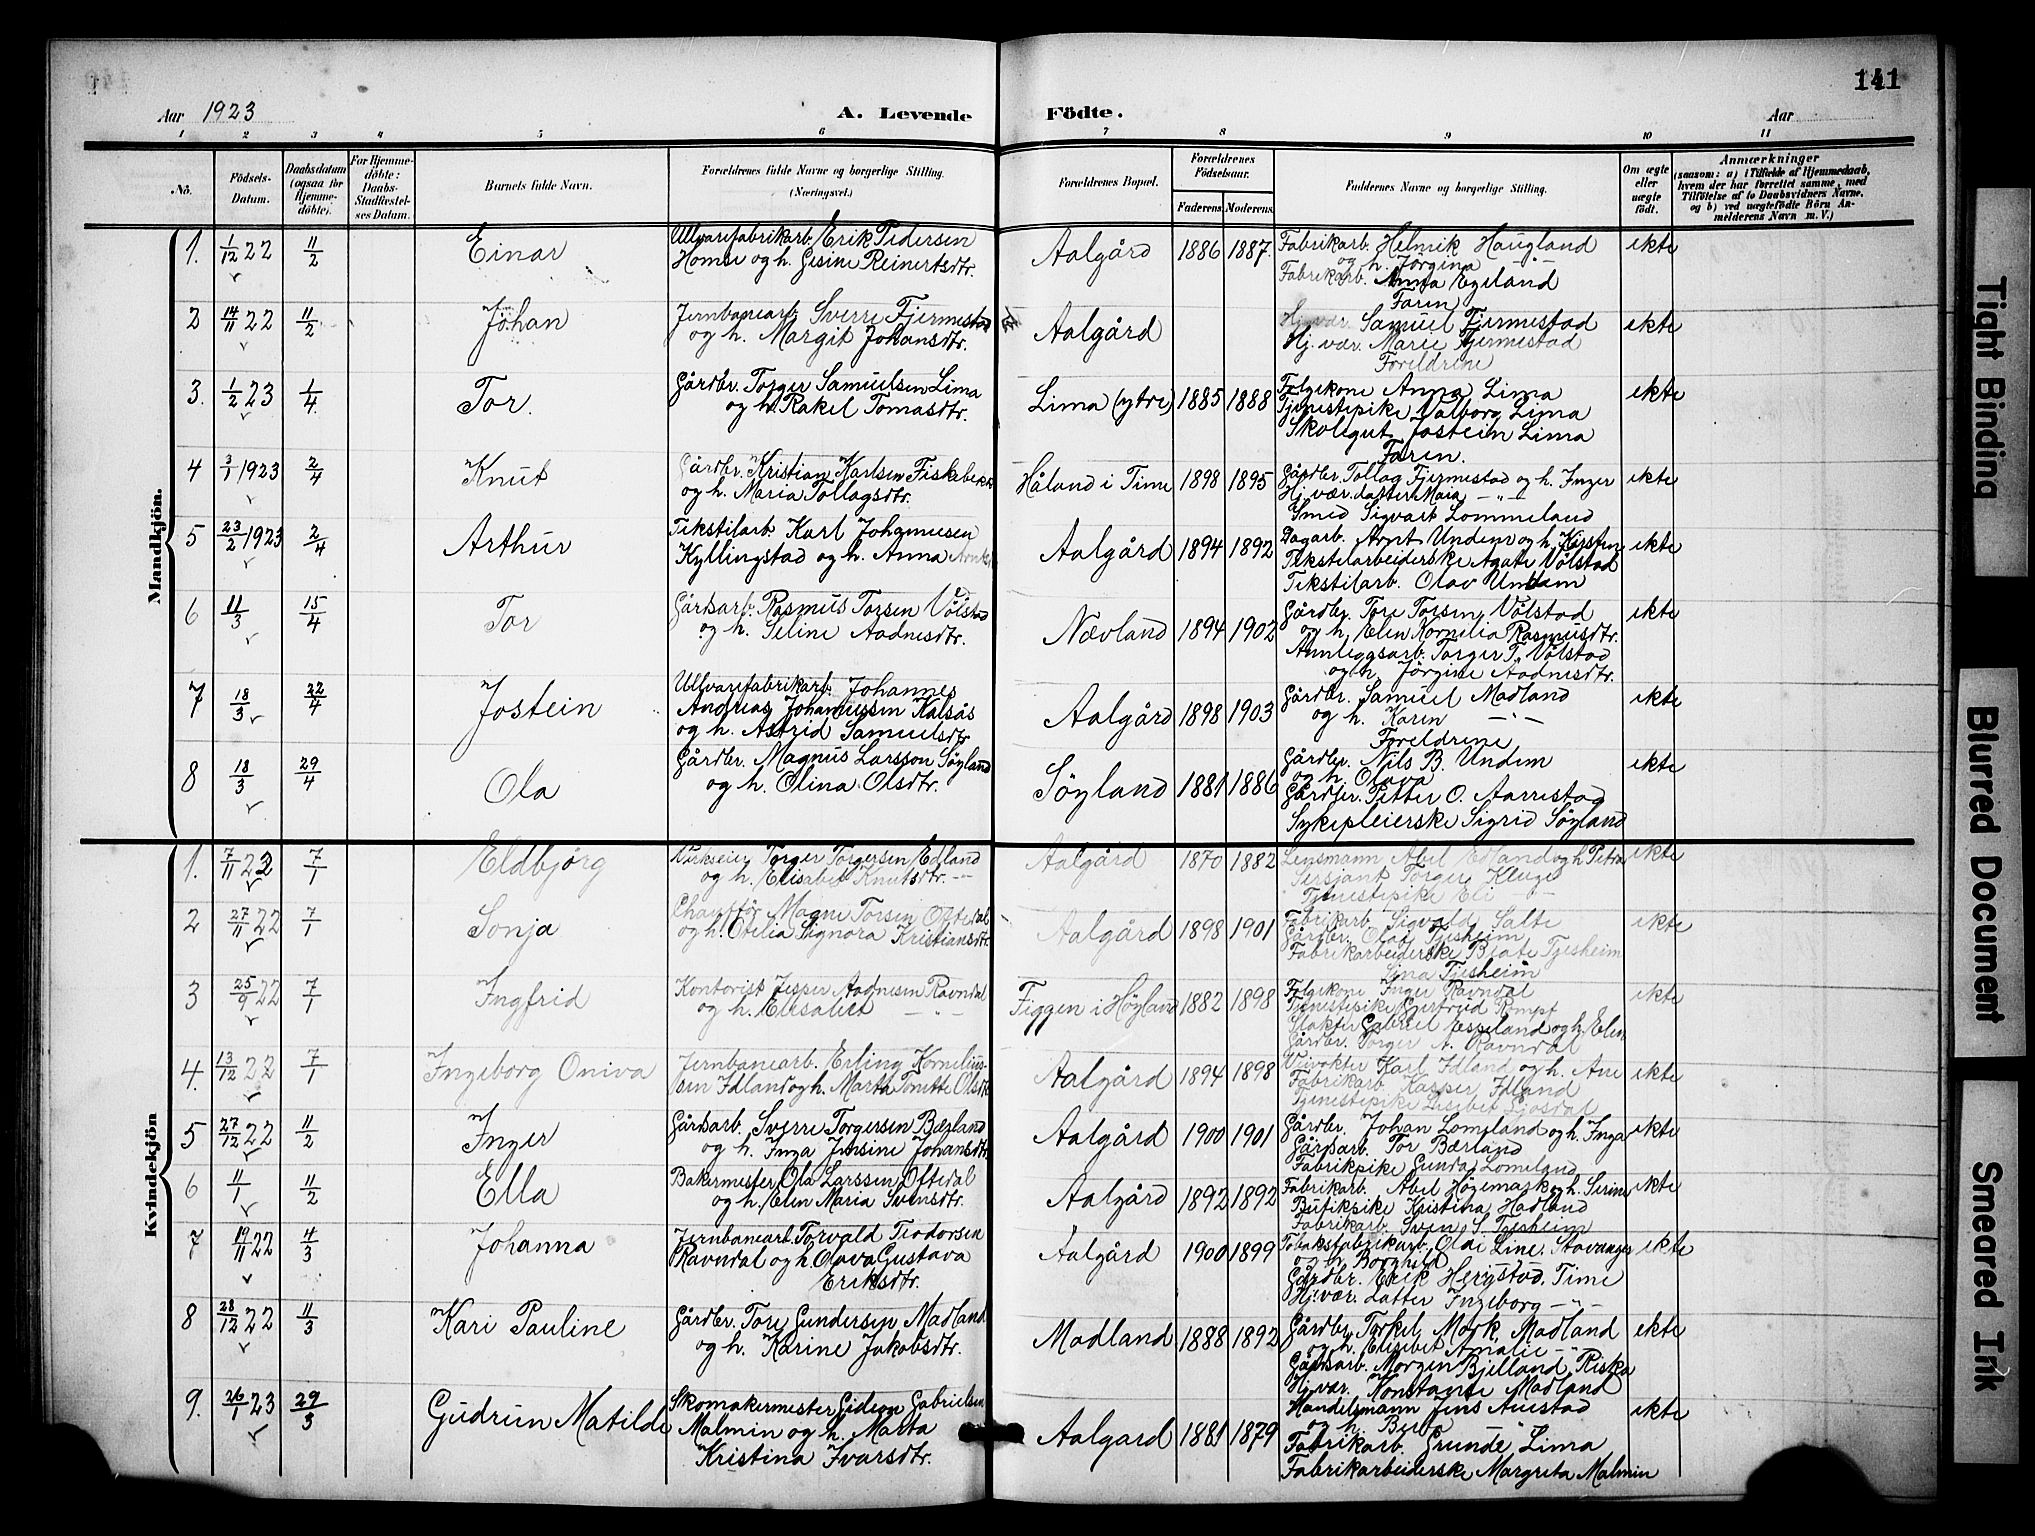 141
Aar 1923
A. Levende Födte.
Aar
1 2 3 4 5 6 7 8 9 10 11
No.
Födsels-Datum.
Daabsdatum (ogsaa for Hjemme-döbte).
For Hjemme-döbte: Daabs-Stadfæstel-ses Datum.
Barnets fulde Navn.
Forældrenes fulde Navne og borgerlige Stilling. (Næringsvei.)
Forældrenes Bopæl.
Forældrenes Födselsaar.
Faderens. Moderens.
Faddernes Navne og borgerlige Stilling.
Om ægte eller uægte födt.
Anmærkninger
(saasom: a) i Tilfælde af Hjemmedaab, hvem der har forrettet samme, med Tilföielse af to Daabsvidners Navne, og b) ved uægtefödte Börn An-melderens Navn m. V.)
Mandkjön.
1. 1/12 22 11/2 Einar
Ullvarefabrikarb. Erik Pedersen
Homse og h. Gesine Reinertsdtr.
Aalgård 1886 1887.
Fabrikarb. Helmik Haugland
og h. Jörgina -"-
Fabrikarb. Anna Egeland
Faren
ekte
2 14/11 22 11/2 Johan
Jernbanearb. Sverre Fjermestad
og h. Margit Johansdtr.
Aalgård
Hj. vær. Samuel Fjermestad
Hj. vær. Marie Fjermestad
Foreldrene
ekte
3. 1/2 23 1/4 Tor.
Gårdbr. Torger Samuelsen Lima
og h. Rakel Tomasdtr.
Lima (ytre) 1885 1888
Følgekone Anna Lima
Tjenestepike Valborg Lima
Skolegut Jostein Lima
Faren.
ekte
4 3/1 1923 2/4 Knut
Gårdbr. Kristian Karlsen Fiskebekk
og h. Maria Tollagsdtr.
Håland i Time 1898 1895
Gårdbr. Tollag Fjermestad og h. Inger
Hj. vær. datter Maia -"-
Smed Sigvart Lommeland
ekte
5 23/2 1923 2/4 Arthur
Tekstilarb. Karl Johannesen
Kyllingstad og h. Anna
Aalgård 1894 1892
Dagarb. Arnt Undem og h. Kirsten
Tekstelarbeiderske Agate Vølstad
Tekstilarb. Olav Undem
ekte
6 11/3 15/4 Tor
Gårdsarb. Rasmus Torsen Vølstad
og h. Seline Aadnesdtr.
Nævland 1894 1902
Gårdbr. Tore Torsen Vølstad
og h. Elen Kornelia Rasmusdtr.
Annleggsarb. Torger T. Vølstad
og h. Jörgine Aadnesdtr.
ekte
7 18/3 22/4 Jostein
Ullvarefabrikarb. Johannes
Andreas Johannessen Kalsås
og h. Astrid Samuelsdtr.
Aalgård 1898 1903
Gårdbr. Samuel Madland
og h. Karen -"-
Foreldrene
ekte
8 18/3 29/4 Ola
Gårdbr. Magnus Larsson Søyland
og h. Olina Olsdtr.
Søyland 1881 1886
Gårdbr. Nils B. Undem
og h. Olava
Gårdbr. Petter O. Aarrestad
Sykepleierske Sigrid Søyland
ekte
Kvindekjön
1. 7/11 22 7/1 Eldbjörg
Verkseier Torger Torgersen Edland
og h. Elisabet Knutsdtr. -"-
Aalgård 1870 1882
Lensmann Abel Edland og h. Petra
Sersjant Torger Kluge
Tjenestepike Eli -"-
ekte
2 27/11 22 7/1 Sonja
Chauffør Magne Torsen Oftedal
og h. Otelia Signora Kristiansdtr.
Aalgård 1898 1901
Fabrikarb. Sigvald Salte
Gårdbr. Olai Tjesheim
Fabrikarbeiderske Beate Tjesheim
Lina Tjesheim
ekte
3 25/9 22 7/1 Ingfrid
Kontorist Jesper Aadnesen Ravndal
og h. Elisabet -"-
Figgen i Høyland 1882 1898
Følgekone Inger Ravndal
Tjenestepike Gjertrud Kompf
Slakter Gabriel Espeland og h. Elen
Gårdbr. Torger A. Ravndal
ekte
4. 13/12 22 7/1 Ingeborg Oniva
Jernbanearb. Erling Kornelius-
sen Idland og h. Marta Tomette Olsdtr.
Aalgård 1894 1898
Veivokter Karl Idland og h. Ane
Fabrikarb. Kasper Idland
Tjenestepike Lisebet Gjosdal
ekte
5 27/12 22 11/2 Inger
Gårdsarb. Sverre Torgersen Bærland
og h. Inga Jensine Johansdtr.
Aalgård 1900 1901
Gårdbr. Johan Lomeland og h. Inga
Gårdsarb. Tor Bærland
Fabrikpike Gunda Lomeland
ekte
6 11/1 11/2 Ella
Bakermester Ola Larssen Oftedal
og h. Elen Maria Svensdtr.
Aalgård 1892 1892
Fabrikarb. Abel Høgemark og h. Serine
Butikpike Kristina Hadland
Fabrikarb. Sven S. Tjesheim
ekte
7 19/11 22 4/3 Johanna
Jernbanearb. Torvald Teodorsen
Ravndal og h. Olava Gustava
Eriksdtr.
Aalgård 1900 1899
Tobaksfabrikarb. Olai Line, Stavanger
og h. Borghild
Gårdbr. Erik Herigstad, Time
Hj. vær. datter Ingeborg -"-
ekte
8 28/12 22 11/3 Kari Pauline
Gårdbr. Tore Gundersen Madland
og h. Karine Jakobsdtr.
Madland 1888 1892
Gårdbr. Torkel Mork, Madland
og h. Elisabet Amalie -"-
Gårdsarb. Morgen Bjelland, Riska
Hj. vær. Konstanse Madland
ekte
9. 26/1 23 29/3 Gudrun Matilde
Skomakermester Gideon Gabrielsen
Malmin og h. Marta
Kristina Ivarsdtr.
Aalgard 1881 1879
Handelsmann Jens Auestad
og h. Berta -"-
Fabrikarb. Grunde Lima
Fabrikarbeiderske Margreta Malmin
ekte
Tight Binding
Blurred Document
Smeared Ink